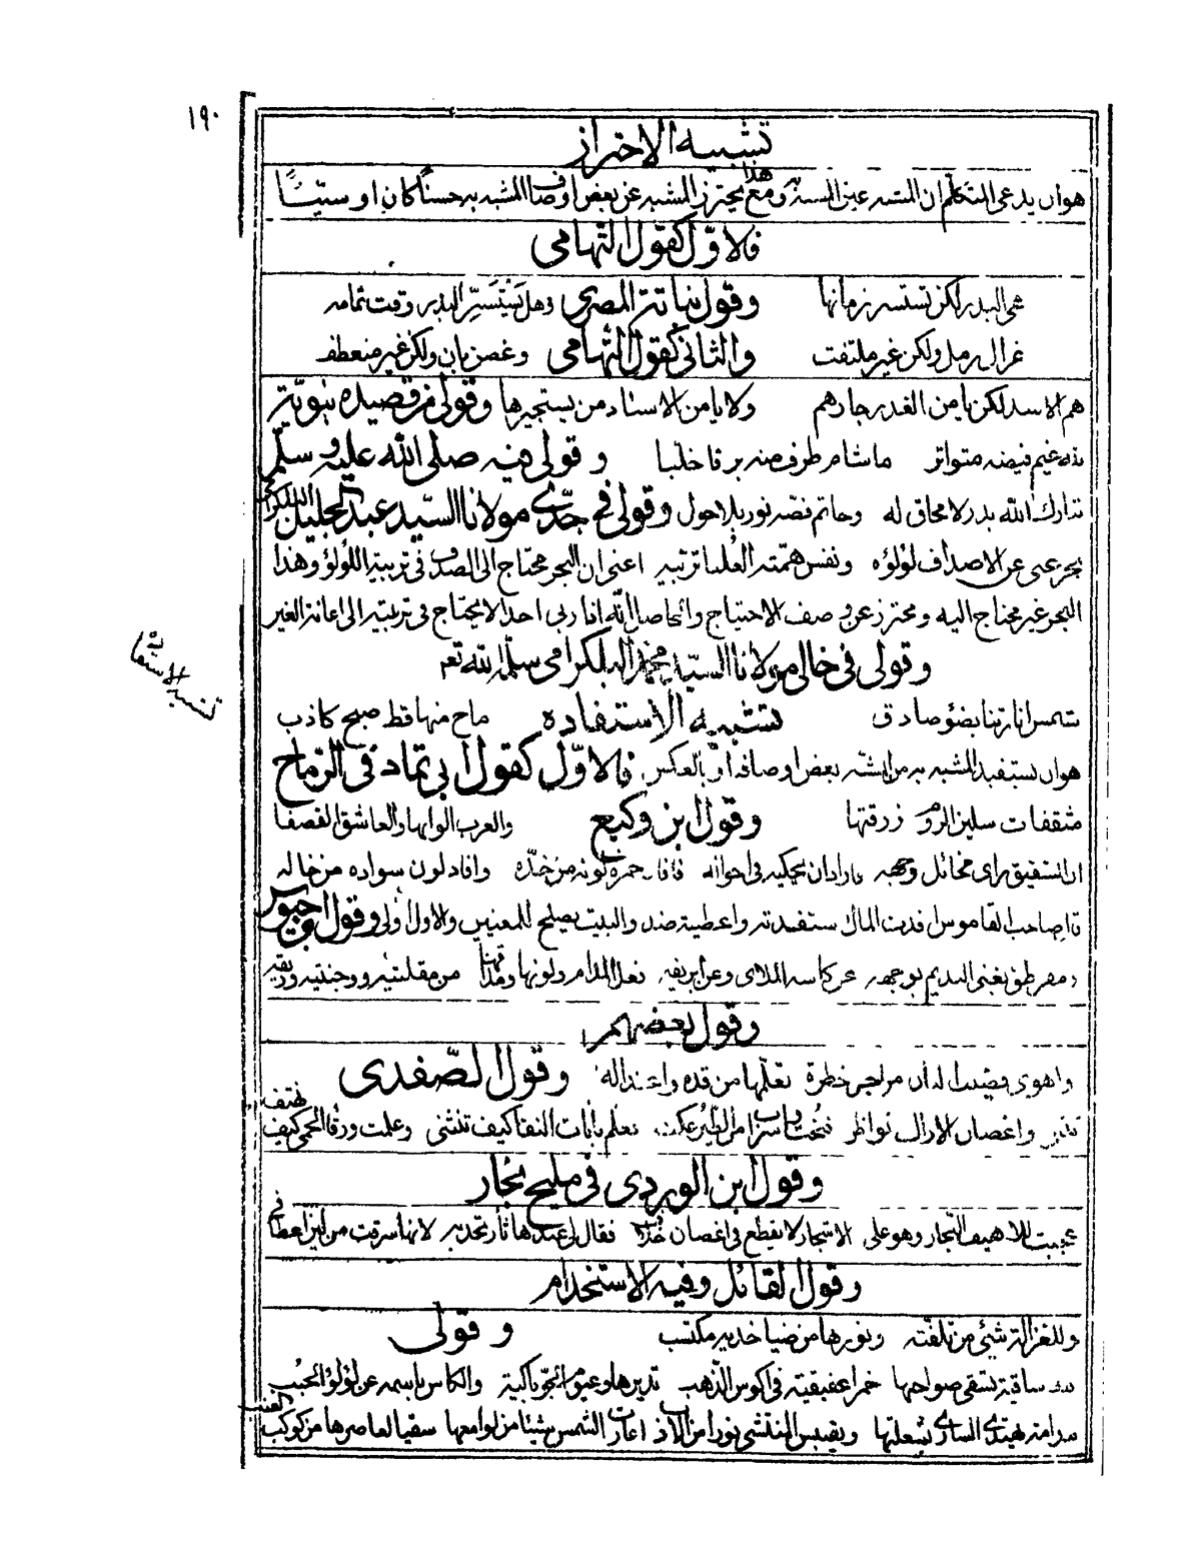 ١٩٠
تشبيه الاحتراز
هو ان يدعى المتكلم ان المشبه عين المشبه به ومع هذا يحترز المشبه عن بعض اوصاف المشبه به حسنًا كان او سيئًا
فالاوّل كقول التهامى
هى البدر لكن تستسر زمانها وهل يَسْتَسِرّ البدر وقت تمامه وقول نباتة المصرى
غزال رمل ولكن غير ملتفت وغصن بان ولكن غير منعطف والثانى كقول التهامى
هم الاسد لكن يأمن الغدر جارهم ولا يأمن الاستاد من يستجيرها وقولى من قصيده نبويّة
غيم فيضه متواتر ما شام طرف منه برقا خلبا وقولى فيه صلى الله عليه وسلّم
تبارك الله بدر لا محاق له وخاتم فصه نور بلا حول وقولى فى جدّى مولانا السيّد عبد الجليل البلكرامى
بحر غنى عن الاصداف لؤلؤه ونفس همته العُليا تربيه اعنى ان البحر محتاج الى الصدف فى تربية اللؤلؤ وهذا
البحر غير محتاج اليه ومحترز عن وصف الاحتياج والحاصل انّه افاد بى احدا لا يحتاج فى تربيته الى اعانة الغير
وقولى فى خالى مولانا السيّد محمّد البلكرامى سلّمه الله تعا
شمس انارتنا بضوء صادق ما لاح منها قط صبح كاذب تشبيه الاستفاده
تشبيه الاستفادة
هو ان يستفيد المشبه به من المشبّه بعض اوصافه او بالعكس فالاوّل كقول ابى تمام فى الرماح
مثقفات سلبن الروم زرقتها والعرب الوانها والعاشق القصفا وقول ابن وكيع
ان الشقيق راى محائل وجهه فاراد ان يحكيه فى احواله فافاد حمرة لونه من خدّه وافاد لون سواده من خاله
قال صاحب القاموس افدت المال استفدته واعطيته ضد والبيت يصلح للمعنيين والاول اولى وقول ابن حيوس
ومقرطق يغنى النديم بوجهه عن كاسه الملاى وعن ابريقه فعل المدام ولونها ومذاقها من مقلتيه ووجنتيه وريقه
وقول بعضهم
واهوى قضيب البان من اجل خطرة تعلّمها من قده واعتداله وقول الصّفدى
واغصان الاراك نواظر تعلم بانات النقا كيف تنثنى وعلمت ورقا الحمى كيف تهتف
وقول ابن الوردى فى مليح نجّار
عجبت للاهيف النجار وهو على الاشجار لا يقطع فى اغصان فقال لى عندها ثار لانها سرقت من لين اعطافى
وقول القائل وفيه الاستخدام
وللغزالة شيئ من تلفته ونورها من ضيا خديه مكتسب وقولى
ساقية تسقى صواحبها خمرا عقيقية فى اكوس الذهب تديرها وعيون الجو باكية والكاس باسمه عن لؤلؤ الحبب
مدامة يهتدى السارى بشعلتها ويقبس المنتشى نورا من اعارت الشمس شيئا من لوامعها سقيا لعاصرها من كوكب العنب